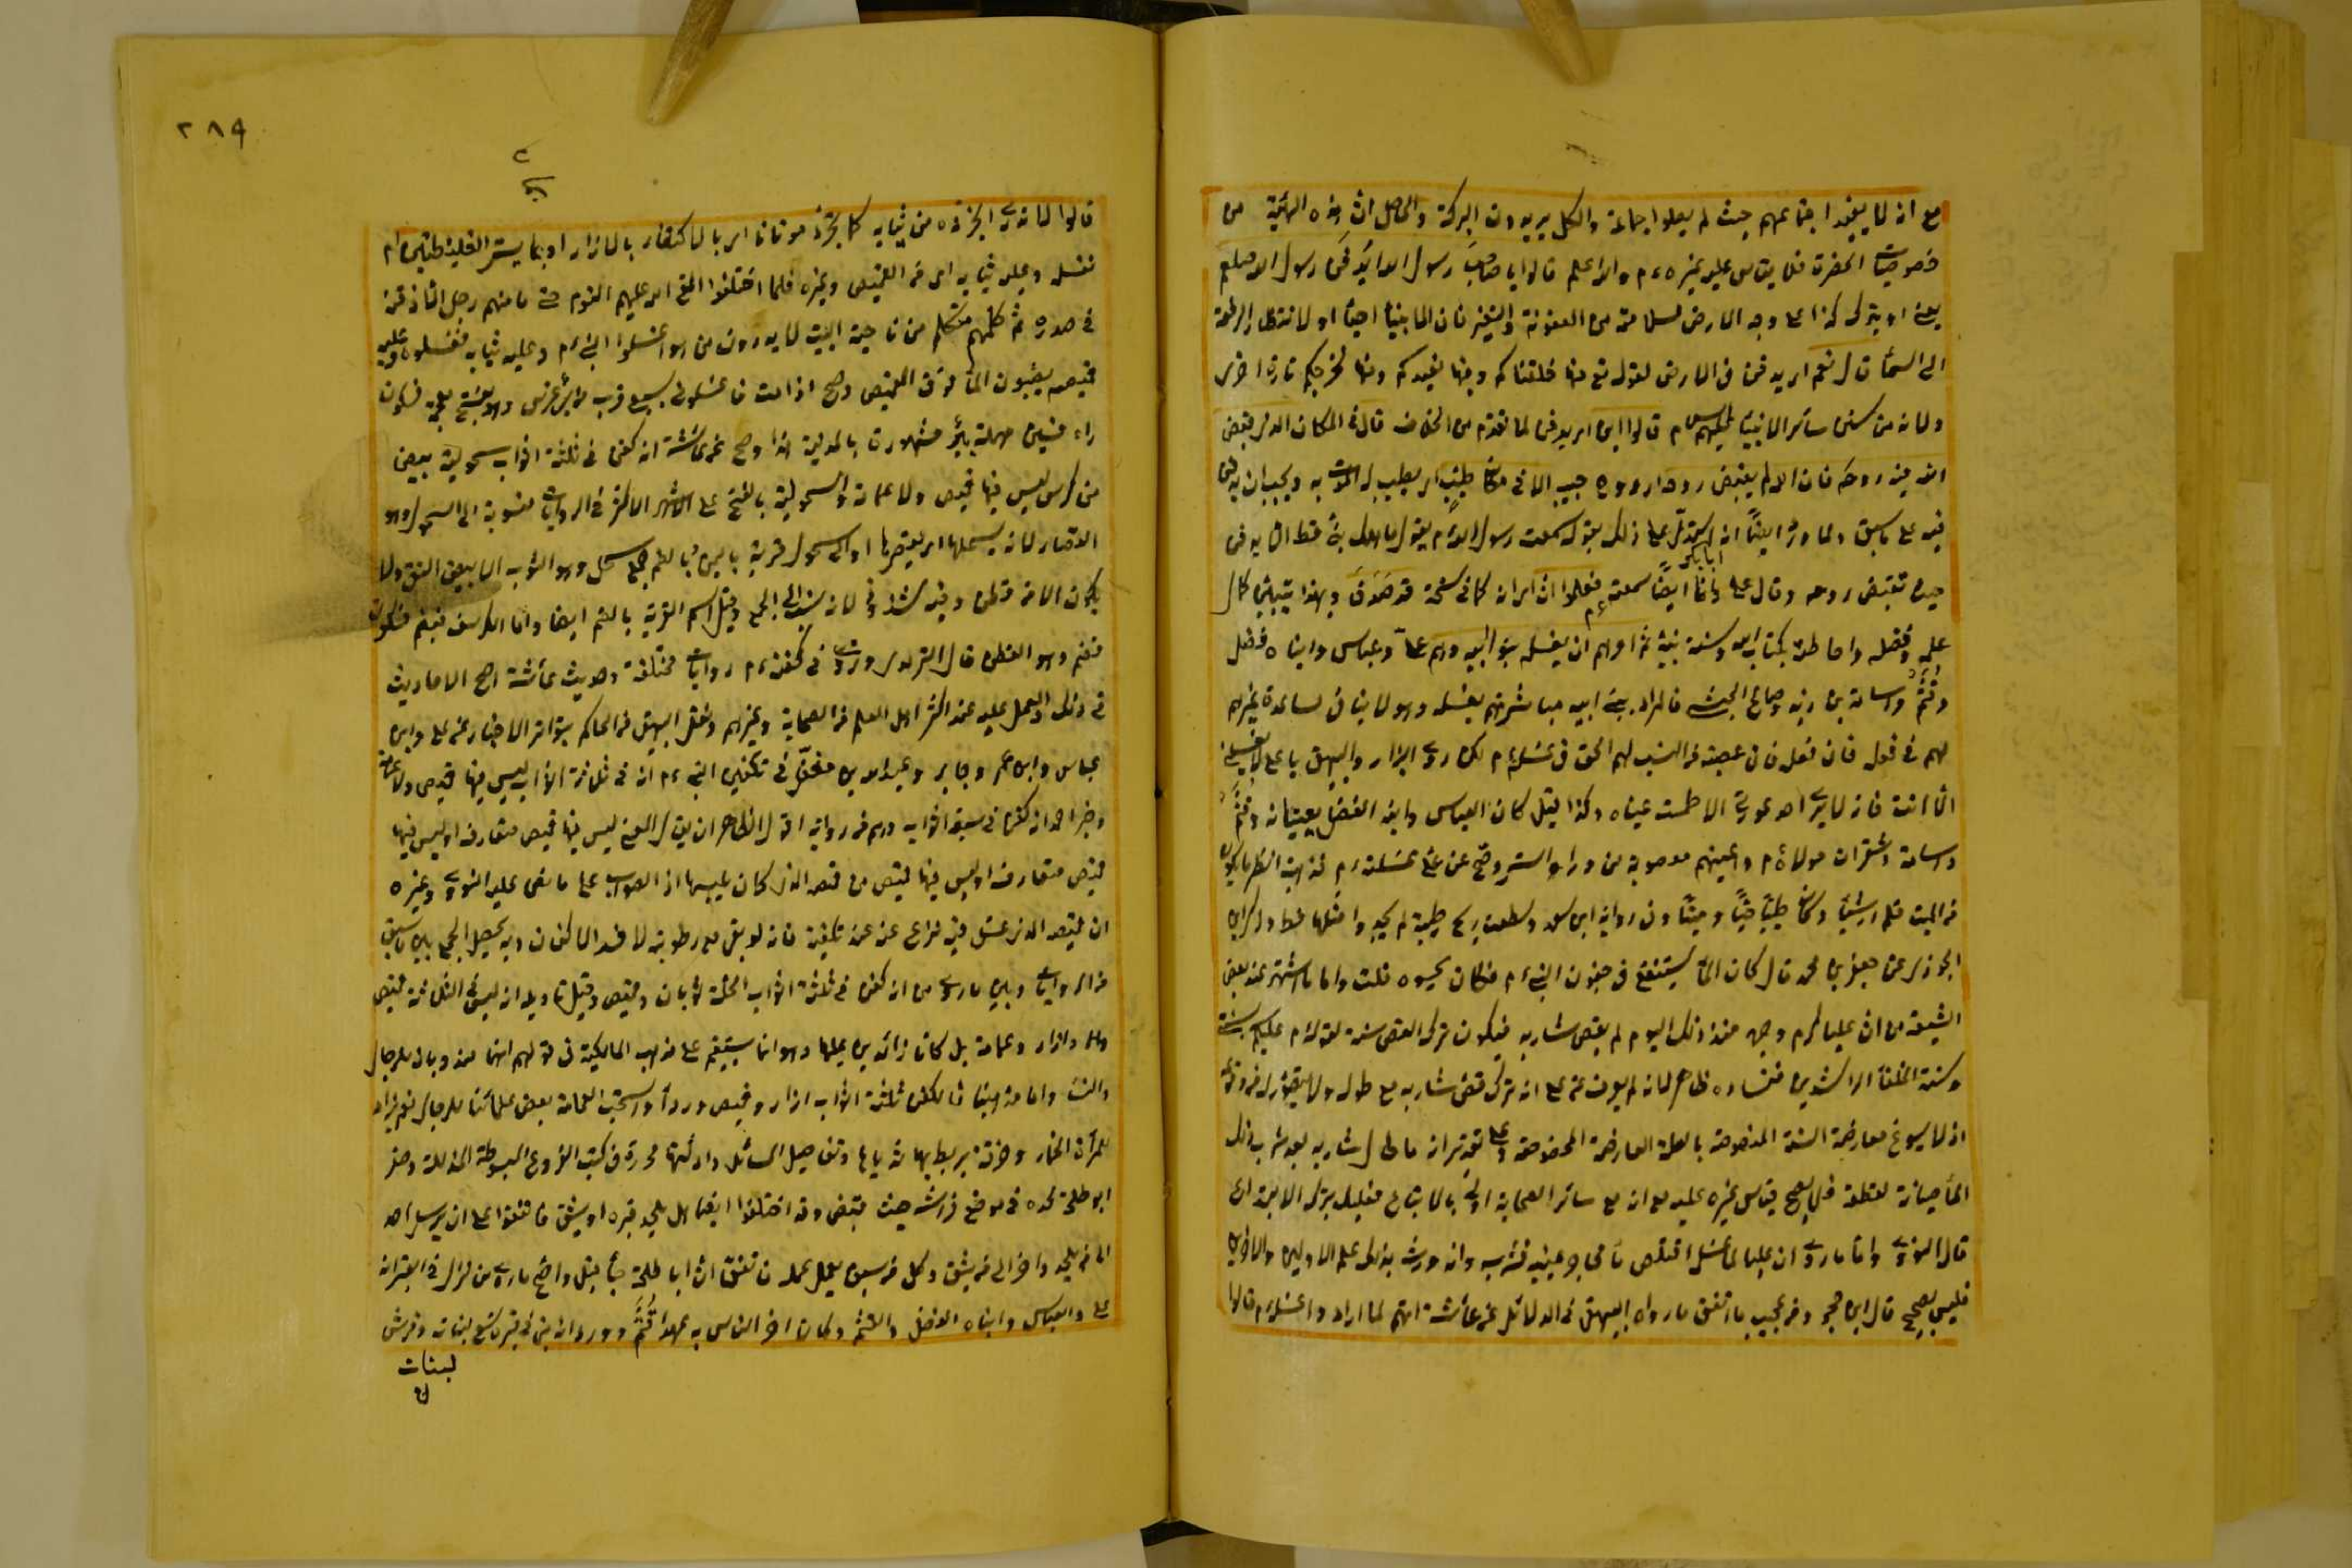 مع انه لما يفيد اجتماعهم حيث لم يصلوا جماعة والكل يريدون البركة والحاصل ان هذه الهيئة من
خصوصيات الحضرة فلا يقاس عليه غيره ءم والله اعلم قالوا يا صاحب رسول الله ايدفن رسول الله صلعم
يعني او يترك كذا على وجه الارض لسلامته من العفونة والتغير فان الانبياء احياء او لانتظار الرفعة
الى السماء قال نعم اي يدفن في الارض لقوله تع منها خلقناكم وفيها نعيدكم ومنها نخرجكم تارة اخرى
ولانه من سنن سائر الانبياء عليهم السلام قالوا اين اي يدفن لما تقدم من الخلاف قال في المكان الذي قبض
الله فيه روحه فان الله لم يقبض روحه اي روح حبيبه الا في مكان طيب اي يطيب له الموت به ويجب ان يدفن
فيه على ما سبق ولما ورد ايضاً انه استدل على ذلك بقوله سمعت رسول الله ءم يقول ما هلك نبي قط الا يدفن
حيث تقبض روحه وقال علي وانا ايضاً سمعته فعلموا ان اي انه كما في نسخة قد صدق وبهذا يتبين كمال
ابا بكر
علمه وفضله واحاطته بكتاب الله وسنة نبيه ثم امرهم ان يغسله بنو ابيه وهم علي وعباس وابناه فضل
وقثم واسامة بن زيد وصالح الحبشي فالمراد ببني ابيه مباشرتهم بغسله وهو لا ينافي مساعدة غيرهم
لهم في فعله فان عصبته من النسب لهم الحق في غسله ءم لكن روى البزار والبيهقي يا علي لا يغسلني
الا انت فانه لا يرى احد عورتي الا طمست عيناه وكذا قيل كان العباس وابنه الفضل يعينانه وقثم
واسامة وشقران مولاه ءم واعينهم معصوبة من وراء الستر وصح عن علي غسلته ءم فذهبت انظر ما يكون
من الميت فلم ار شيئاً وكان طيباً حياً وميتاً وفي رواية ابن سعد وسطعت ريح طيبة لم يجدوا مثلها قط وذكر ابن
الجوزي عن جعفر بن محمد قال كان الماء يستنقع في جفون النبي ءم فكان علي يحسوه قلت واما ما اشتهر عند بعض
الشيعة من ان عليا كرم وجهه منذ ذلك اليوم لم يقص شاربه فيكون ترك القص سنة لقوله ءم عليكم بسنتي
وسنة الخلفاء الراشدين ففساده ظاهر لانه لم يعرف عن علي انه ترك قص شاربه مع طوله ولا يتصور له فرد وقوعه
اذ لا يسوغ معارضة السنة المنصوصة بالعلة العارضة المخصوصة وعلى تقدير انه ما طال شاربه بعد شرب ذلك
الماء صيانة لقطعه فلا يصح قياس غيره عليه مع انه مع سائر الصحابة اولى بالاتباع
قال النووي واما ما روي ان عليا لما غسله اقتلص ماء محاجر عينيه فشربه وانه ورث بذلك علم الاولين والآخرين
فليس بصحيح قال ابن حجر ومن عجيب ما اتفق ما رواه البيهقي في الدلائل عن عائشة انهم لما ارادوا غسله ءم قالوا
٢٨٩
قالوا لا ندري انجرده من ثيابه كما نجرد موتانا اي بالاكتفاء بالازار او بما يستر الغليظتين ام
نغسله وعليه ثيابه اي من القميص وغيره فلما اختلفوا القى الله عليهم النوم حتى ما منهم رجل الا وذقنه
في صدره ثم كلمهم متكلم من ناحية البيت لا يدرون من هو اغسلوا النبي ءم وعليه ثيابه فغسلوه وعليه
قميصه يصبون الماء فوق القميص وصح اذا مت فاغسلوني بسبع قرب من بئري بئر غرس وهو بفتح معجمة فسكون
راء فسين مهملة بئر مشهورة بالمدينة هذا وصح عن عائشة انه كفن في ثلثة اثواب سحولية بيض
من كرسف ليس فيها قميص ولا عمامة والسحولية بالفتح على الاشهر الاكثر في الروايات منسوبة الى السحول وهو
القصار لانه يسحلها اي يقصرها او الى سحول قرية باليمن وبالضم جمع سحل وهو الثوب الابيض النقي ولا
يكون الا من قطن وفيه شذوذ لانه نسب الى الجمع وقيل اسم القرية بالضم ايضا واما الكرسف فبضم فسكون
فضم وهو القطن قال الترمذي وروى في كفنه ءم روايات مختلفة وحديث عائشة اصح الاحاديث
في ذلك والعمل عليه عند اكثر اهل العلم من الصحابة وغيرهم ونقل البيهقي عن الحاكم بتواتر الاخبار عن علي وابن
عباس وابن عمر وجابر وعبد الله بن مغفل في تكفين النبي ءم انه في ثلاثة اثواب ليس فيها قميص ولا عمامة
وخبر احمد انه كفن في سبعة اثواب وهم من رواية اقول الظاهر ان يقال المعنى ليس فيها قميص متعارف او ليس فيها
قميص متعارف او ليس فيها قميص من قمصه الذي كان يلبسها اذ الصواب على ما نص عليه النووي وغيره
ان قميصه الذي غسل فيه نزع عنه عند تكفينه فانه لو بقي مع رطوبته لافسد الاكفان وبه يحصل الجمع بين ما سبق
من الروايات وبين ما روي من انه كفن في ثلثة اثواب الحلة ثوبان وقميص وقيل تاويله انه ليس في الثلاثة قميص
وازار وعمامة بل كانا زائدين عليها وهو انما يستقيم على مذهب المالكية في قولهم انها مندوبان للرجال
والنساء واما مذهبنا فالكفن ثلثة اثواب ازار وقميص ورداء واستحب العمامة بعض علمائنا للرجال نعم يزاد
للمرأة الخمار وخرقة يربط بها ثدياها وتفاصيل المسائل وادلتها محررة في كتب الفروع المبسوطة المذيلة وحفر
ابو طلحة لحده في موضع فراشه حيث قبض وقد اختلفوا ايضا هل يلحد قبره او يشق فاتفقوا على ان يرسل احد
الى من يلحد وآخر الى من يشق وكل من سبق يعمل عمله فاتفق ان ابا طلحة جاء قبل واصح ما روي من نزل في القبر انه
علي والعباس وابناه الفضل والقثم وكان آخر الناس به عهدا قثم وورد انه بني في قبره تسع لبنات وفرش
لبنات